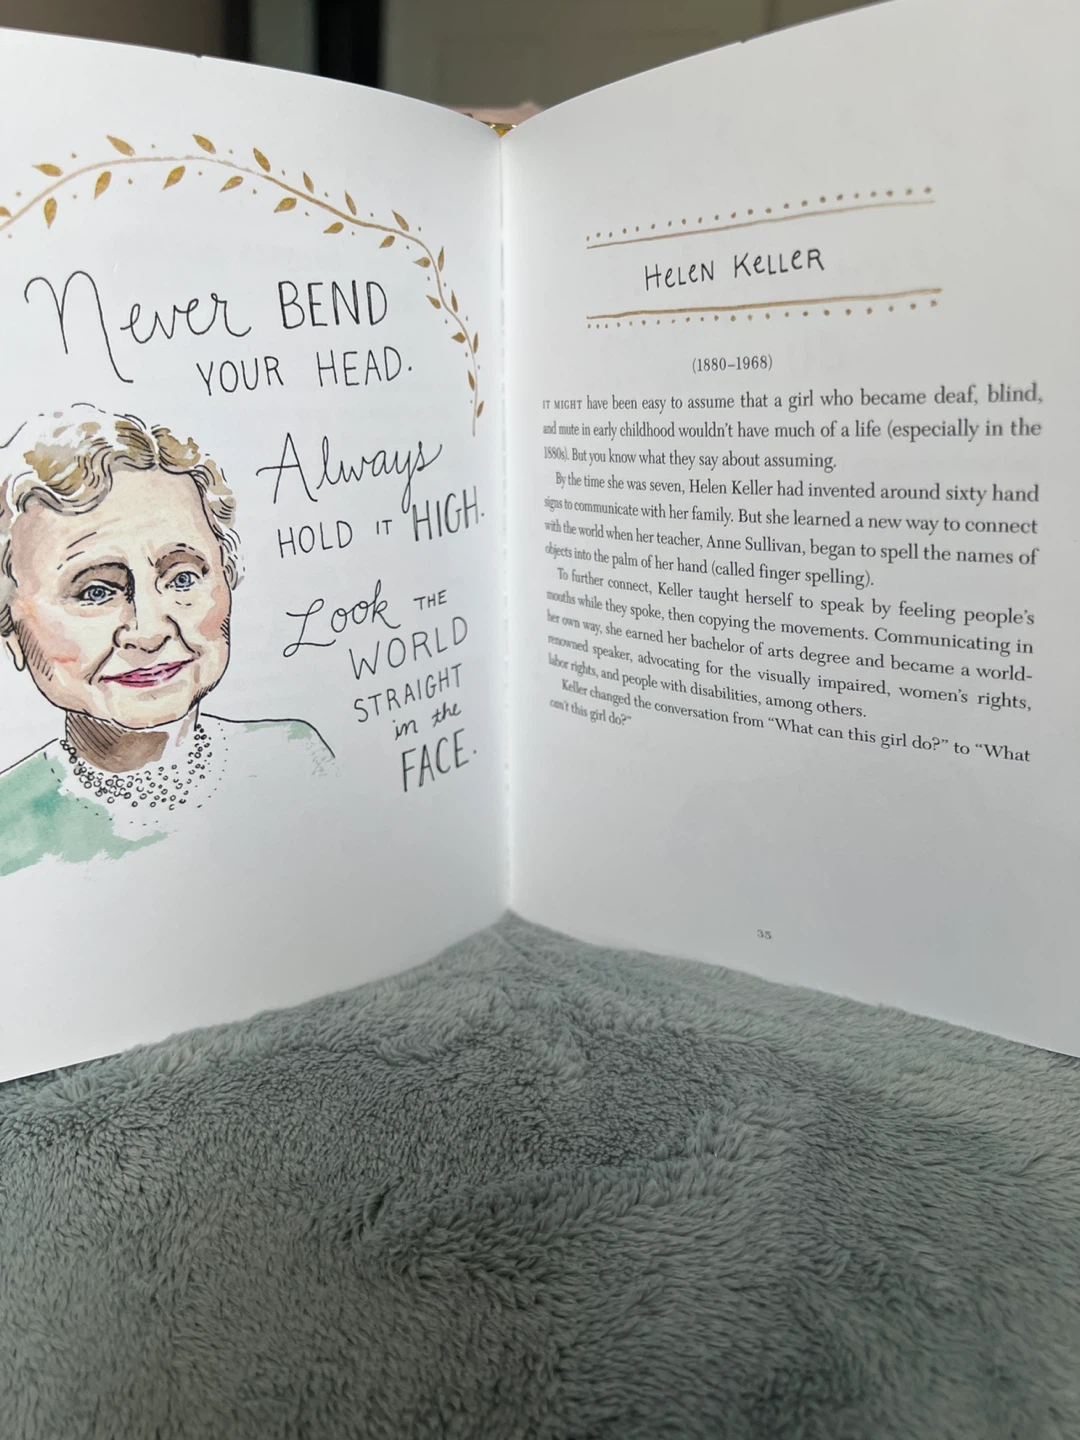 Never BEND
YOUR HEAD.
Always
HOLD IT HIGH.
Look THE
WORLD
STRAIGHT
in the
FACE.
HELEN KELLER
(1880–1968)
IT MIGHT have been easy to assume that a girl who became deaf, blind,
and mute in early childhood wouldn't have much of a life (especially in the
1880s). But you know what they say about assuming.
By the time she was seven, Helen Keller had invented around sixty hand
signs to communicate with her family. But she learned a new way to connect
with the world when her teacher, Anne Sullivan, began to spell the names of
objects into the palm of her hand (called finger spelling).
To further connect, Keller taught herself to speak by feeling people's
mouths while they spoke, then copying the movements. Communicating in
her own way, she earned her bachelor of arts degree and became a world-
renowned speaker, advocating for the visually impaired, women's rights,
labor rights, and people with disabilities, among others.
Keller changed the conversation from "What can this girl do?" to "What
can't this girl do?"
35